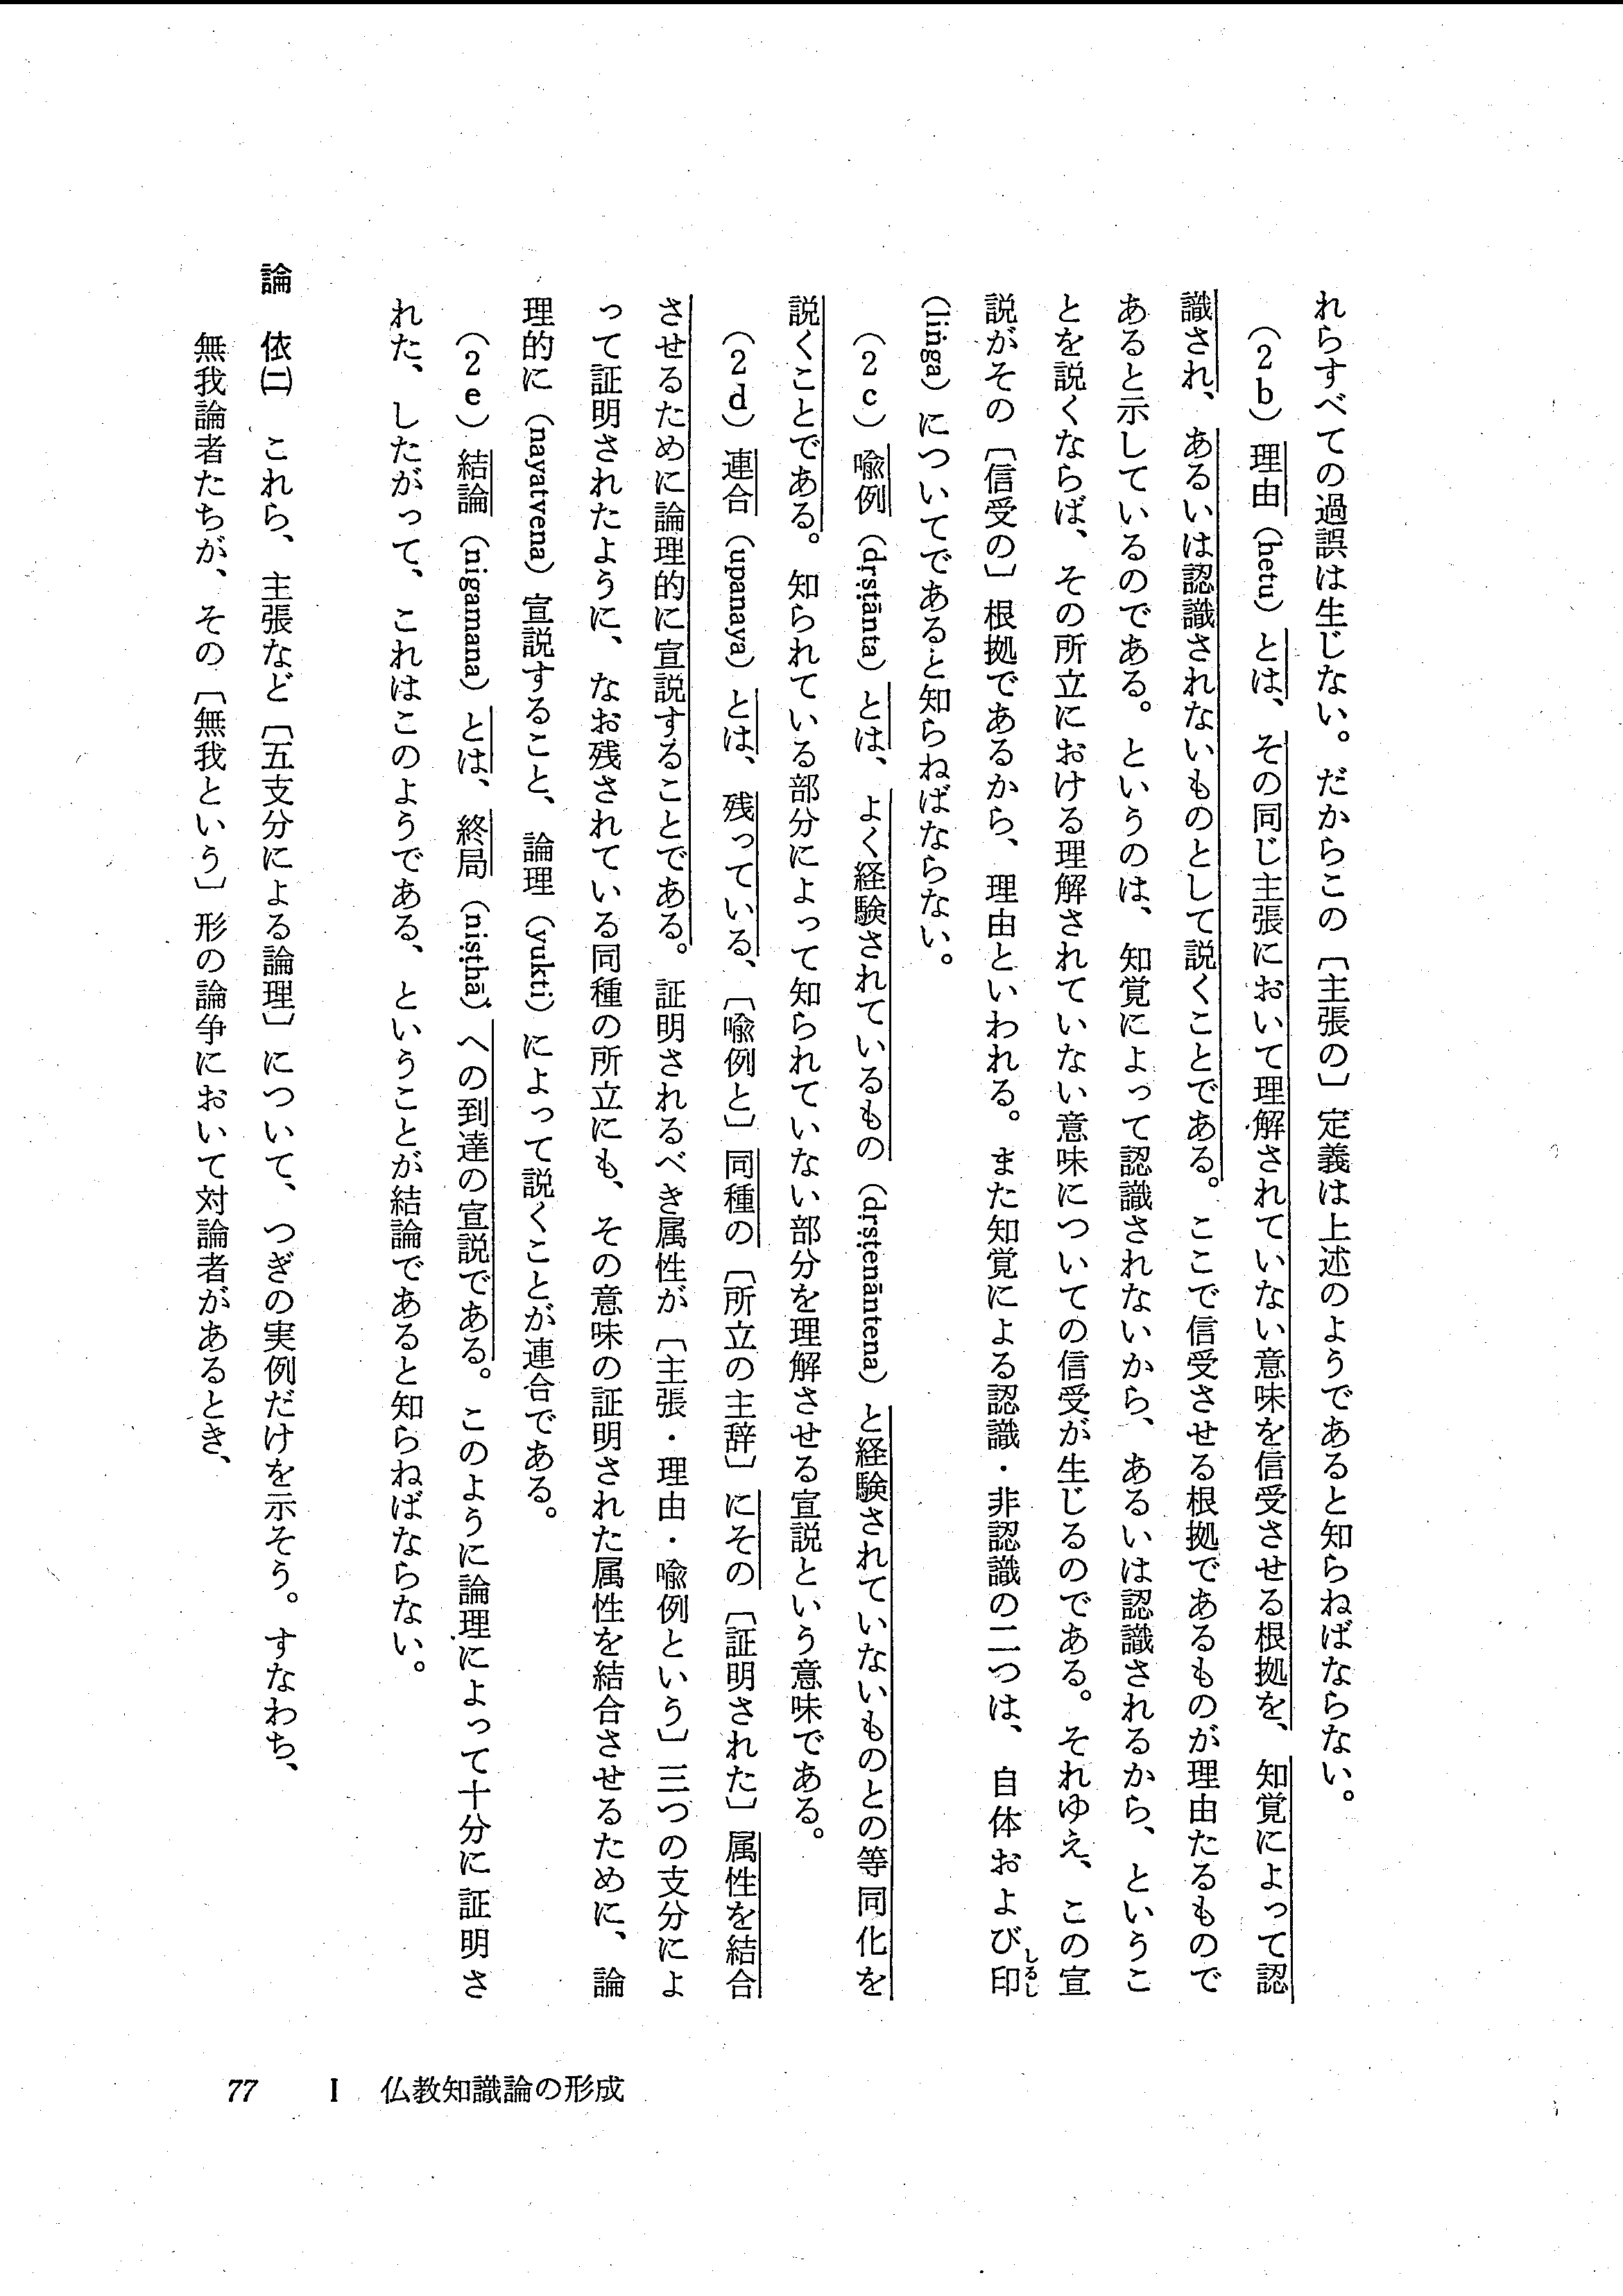 れらすべての過誤は生じない。だからこの〔主張の〕定義は上述のようであると知らねばならない。
（２ｂ）理由（hetu）とは、その同じ主張において理解されていない意味を信受させる根拠を、知覚によって認
識され、あるいは認識されないものとして説くことである。ここで信受させる根拠であるものが理由たるもので
あると示しているのである。というのは、知覚によって認識されないから、あるいは認識されるから、というこ
とを説くならば、その所立における理解されていない意味についての信受が生じるのである。それゆえ、この宣
説がその〔信受の〕根拠であるから、理由といわれる。また知覚による認識・非認識の二つは、自体および印しるし
（liṅga）についてであると知らねばならない。
（２ｃ）喩例（dṛṣṭānta）とは、よく経験されているもの（dṛṣṭenāntena）と経験されていないものとの等同化を
説くことである。知られている部分によって知られていない部分を理解させる宣説という意味である。
（２ｄ）連合（upanaya）とは、残っている、〔喩例と〕同種の〔所立の主辞〕にその〔証明された〕属性を結合
させるために論理的に宣説することである。証明されるべき属性が〔主張・理由・喩例という〕三つの支分によ
って証明されたように、なお残されている同種の所立にも、その意味の証明された属性を結合させるために、論
理的に（nayatvena）宣説すること、論理（yukti）によって説くことが連合である。
（２ｅ）結論（nigamana）とは、終局（niṣṭhā）への到達の宣説である。このように論理によって十分に証明さ
れた、したがって、これはこのようである、ということが結論であると知らねばならない。
論　依㈡　これら、主張など〔五支分による論理〕について、つぎの実例だけを示そう。すなわち、
無我論者たちが、その〔無我という〕形の論争において対論者があるとき、
77　Ⅰ　仏教知識論の形成